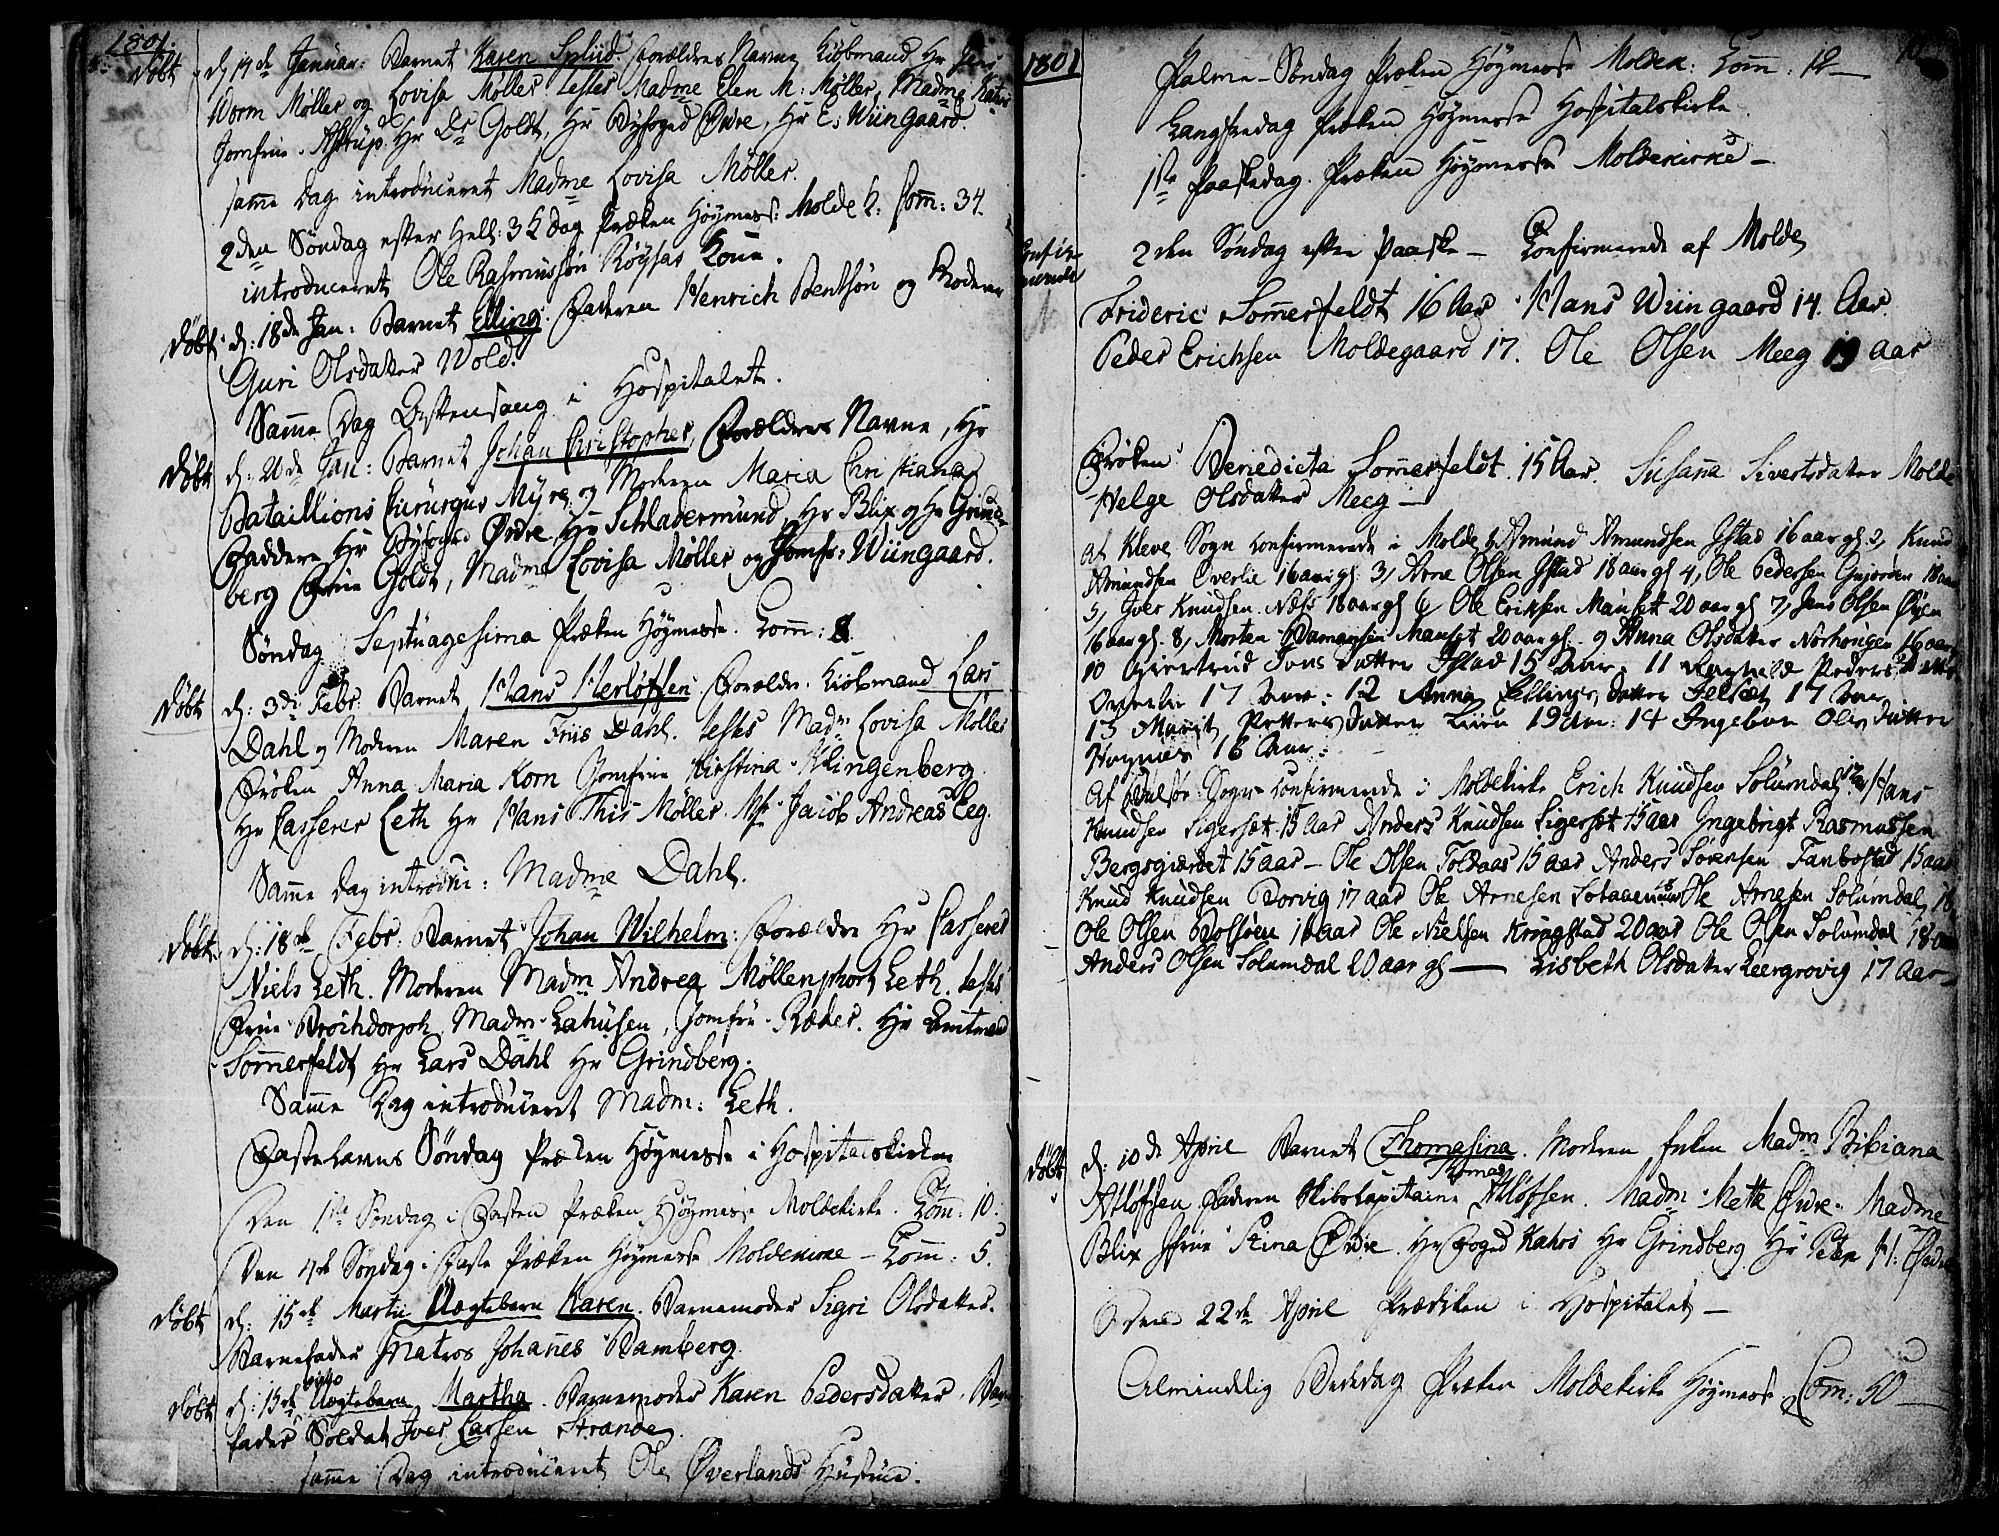 1801.
Døbt d 14de Januar: Barnet Karen Splüd. Forældres Navne Kiøbmand Hr Jens
Worm Møller og Lovisa Møller Testes Madme Elen M: Møller, Madme
Jomfrue Astrup. Hr Dr Goldt, Hr Byfoged Øvre, Hr E: Wiingaard.
samme Dag introduceret Madme Lovisa Møller.
2den Søndag efter Hell: 3 K dag Præken Høymesse: Molde K: Com: 34.
introduceret Ole Rasmussøn Røysas Kone.
Døbt d: 18de Jan: Barnet Elling. Faderen Henrich Bentsøn og Moderen
Guri Olsdatter Wold.
Samme Dag Aftensang i Hospitalet.
Døbt d: 20de Jan: Barnet Johan Christopher, Forældres Navne, Hr
Bataillions Chirurgus Myre og Moderen Maria Christiana
Faddere Hr Byfoged Øvre Hr Schladermund, Hr Blix og Hr Grind-
berg Frue Goldt, Madme Lovisa Møller og Jomfr: Wiingaard.
Søndag Septuagesima Præken Høymesse. Com: 8.
Døbt d: 3de Febr: Barnet Hans Herlofsen Forældr. Kiøbmand Lars
Dahl og Moderen Maren Friis Dahl. Testes Madm Lovisa Møller
Frøken Anna Maria Korn Jomfrue Kirstina Klingenberg
Hr Casserer Leth Hr Hans This Møller. Mr Jacob Andreas Eeg.
Samme Dag introdu: Madme Dahl.
Døbt d: 18de Febr: Barnet Johan Wilhelm: Forældre Hr Casserer
Niels Leth. Moderen Madm Andrea Møllenphort Leth. Testes
Frue Brochdorph. Madm Lahusen, Jomfru Ræder. Hr Amtmand
Somerfeldt Hr Lars Dahl Hr Grindberg.
Samme Dag introduceret Madm: Leth.
Fastelavns Søndag Præken Høymesse i Hospitalskirken
Den 1ste Søndag i Fasten Præken Høymesse Moldekirke. Com: 10.
Den 4de Søndag i Faste Præken Høymesse Moldekirke - Com: 5.
Døbt d: 15de Martii Uægtebarn Karen. Barnemoder Sigri Olsdatter.
Barnefader Matros Johannes Bamberg.
Døbt d: 15de Uægtebarn Martha. Barnemoder Karen Pedersdatter. Barne
fader Soldat Iver Larsen Strande.
samme Dag introduceret Ole Øverlands Hustrue.
1801
Palme-Søndag Præken Høymesse Molde K: Com: 12 -
Langfredag Præken Høymesse Hospitalskirke.
1ste Paaskedag. Præken Høymesse Moldekirke -
2den Søndag efter Paaske - Confirmerede af Molde
Frideric Somerfeldt 16 Aar Hans Wiingaard 14. Aar.
Peder Erichsen Moldegaard 17. Ole Olsen Meeg 19 aar
Frøken Benedicta Somerfeldt. 15 Aar. Susanna Sivertsdatter Molde
Helge Olsdatter Meeg -
Af Kleve Sogn confirmerede i Molde 1, Amund Amundsen Istad 16 aar gl. 2, Knud
Amundsen Øverlie 16 aar gl: 3, Arne Olsen Istad 18 aar gl 4, Ole Pedersen 18 aar
5, Iver Knudsen Næss 18 aar gl 6, Ole Eriksen Manset 20 aar gl 7, Jens Olsen Øyen
16 aar gl. 8, Morten Manset 20 aar gl. 9 Anna Olsdatter 16 aar
10 Giertrud Jons Datter Istad 15 Aar. 11 Ragnilde Peders Datter
17 Aar: 12 Anne Ellings Datter 17 Aar
13 Marit Petters Datter 19 Aar: 14 Ingebor Ols Datter
16 Aar:
Af Bolsø Sogn confirmerede i Moldekirke Erich Knudsen Solumdal Hans
Knudsen Sigerset 15 Aar Anders Knudsen Sigerset 15 aar Ingebrigt Rasmussen
Bergsgiærdet 15 aar - Ole Olsen Foldaas 15 aar Anders Sørensen 15 aar
Knud Knudsen Dorvig 17 aar Ole Arnesen Ole Arnesen Solumdal 18
Ole Olsen Bolsøen 16 aar Ole Nielsen Kringstad 20 aar Ole Olsen Solumdal 18 aar
Anders Olsen Solumdal 20 aar gl - Lisbeth Olsdatter Leergrovig 17 Aar -
Døbt d: 10de April Barnet Thomasina. Moderen Enken Madm Bibiana
Atløfsen. Faderen Skibskapitaine Thomas Atløfsen. Madm Mette Øvre. Madme
Blix Jfrue Stina Øvre. Hr Foged Kahrs Hr Grindberg Hr Peter H: Øvre
Den 22de April Prædiken i Hospitalet -
Almindelig Bededag Præken Moldekirke Høymesse. Com: 50